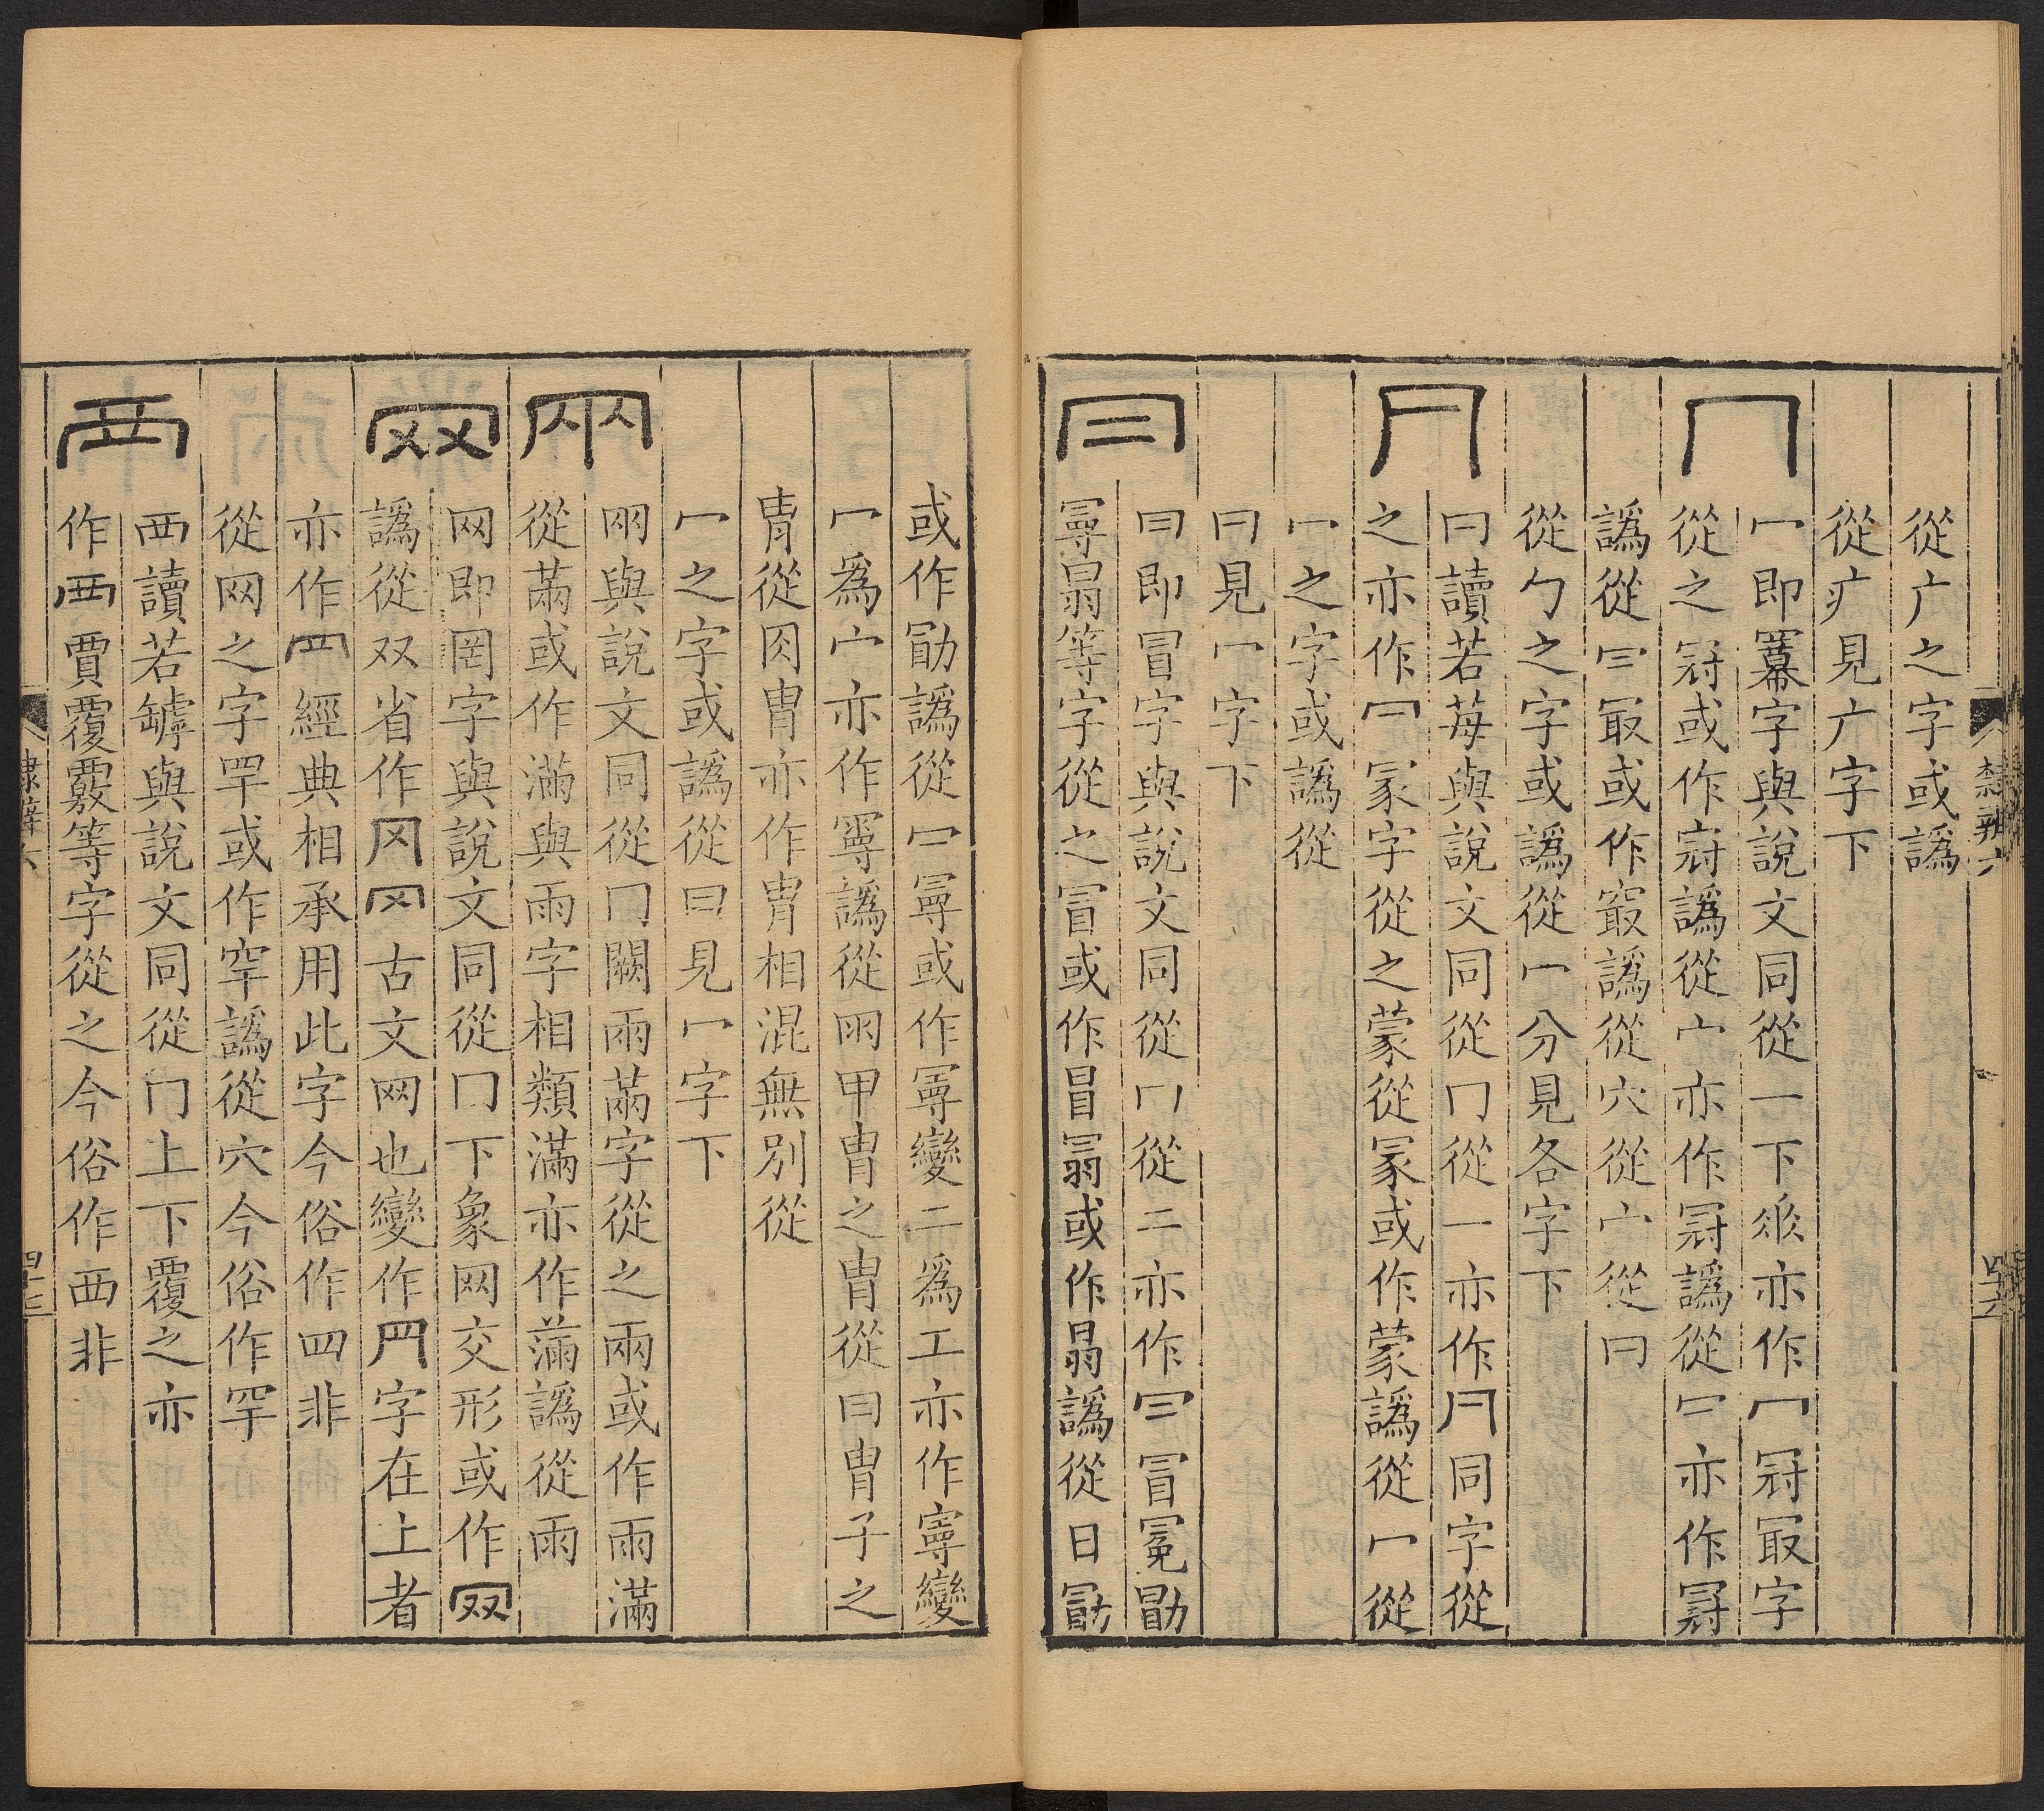 從广之字或譌
從疒見疒字下
冖
冖即冪字與說文同從一下𠂢亦作冖冠冣字
從之冠或作𡨥譌從宀亦作𡨥譌從冃亦作𡨥
譌從冃冣或作㝡譌從穴從宀從曰
從勹之字或譌從冖分見各字下
𠔼
𠔼讀若莓與說文同從冂從一亦作𠔼同字從
之亦作冃冡字從之蒙從冡或作蒙譌從冖從
冖之字或譌從
冃見冖字下
冃
冃即冒字與說文同從冂從二亦作冃冒冕勖
冔㒻等字從之冒或作冒㒻或作㒻譌從日勖
或作勖譌從冃冔或作冔變二爲工亦作㝑變
冖爲宀亦作㝑譌從网甲冑之冑從冃冑子之
胄從肉冑亦作胄相混無別從
冖之字或譌從冃見冖字下
㒳
㒳與說文同從冂闕兩㒼字從之兩或作兩滿
從㒼或作滿與雨字相類滿亦作蒲譌從雨
网
网即罔字與說文同從冂下象网交形或作网
譌從双省作冈冈古文网也變作罒字在上者
亦作罒經典相承用此字今俗作四非
從网之字罕或作䍐譌從穴今俗作罕
襾
襾讀若罅與說文同從冂上下覆之亦
作覀賈覆覈等字從之今俗作西非
隸辨六
四十六
隸辨六
四十三